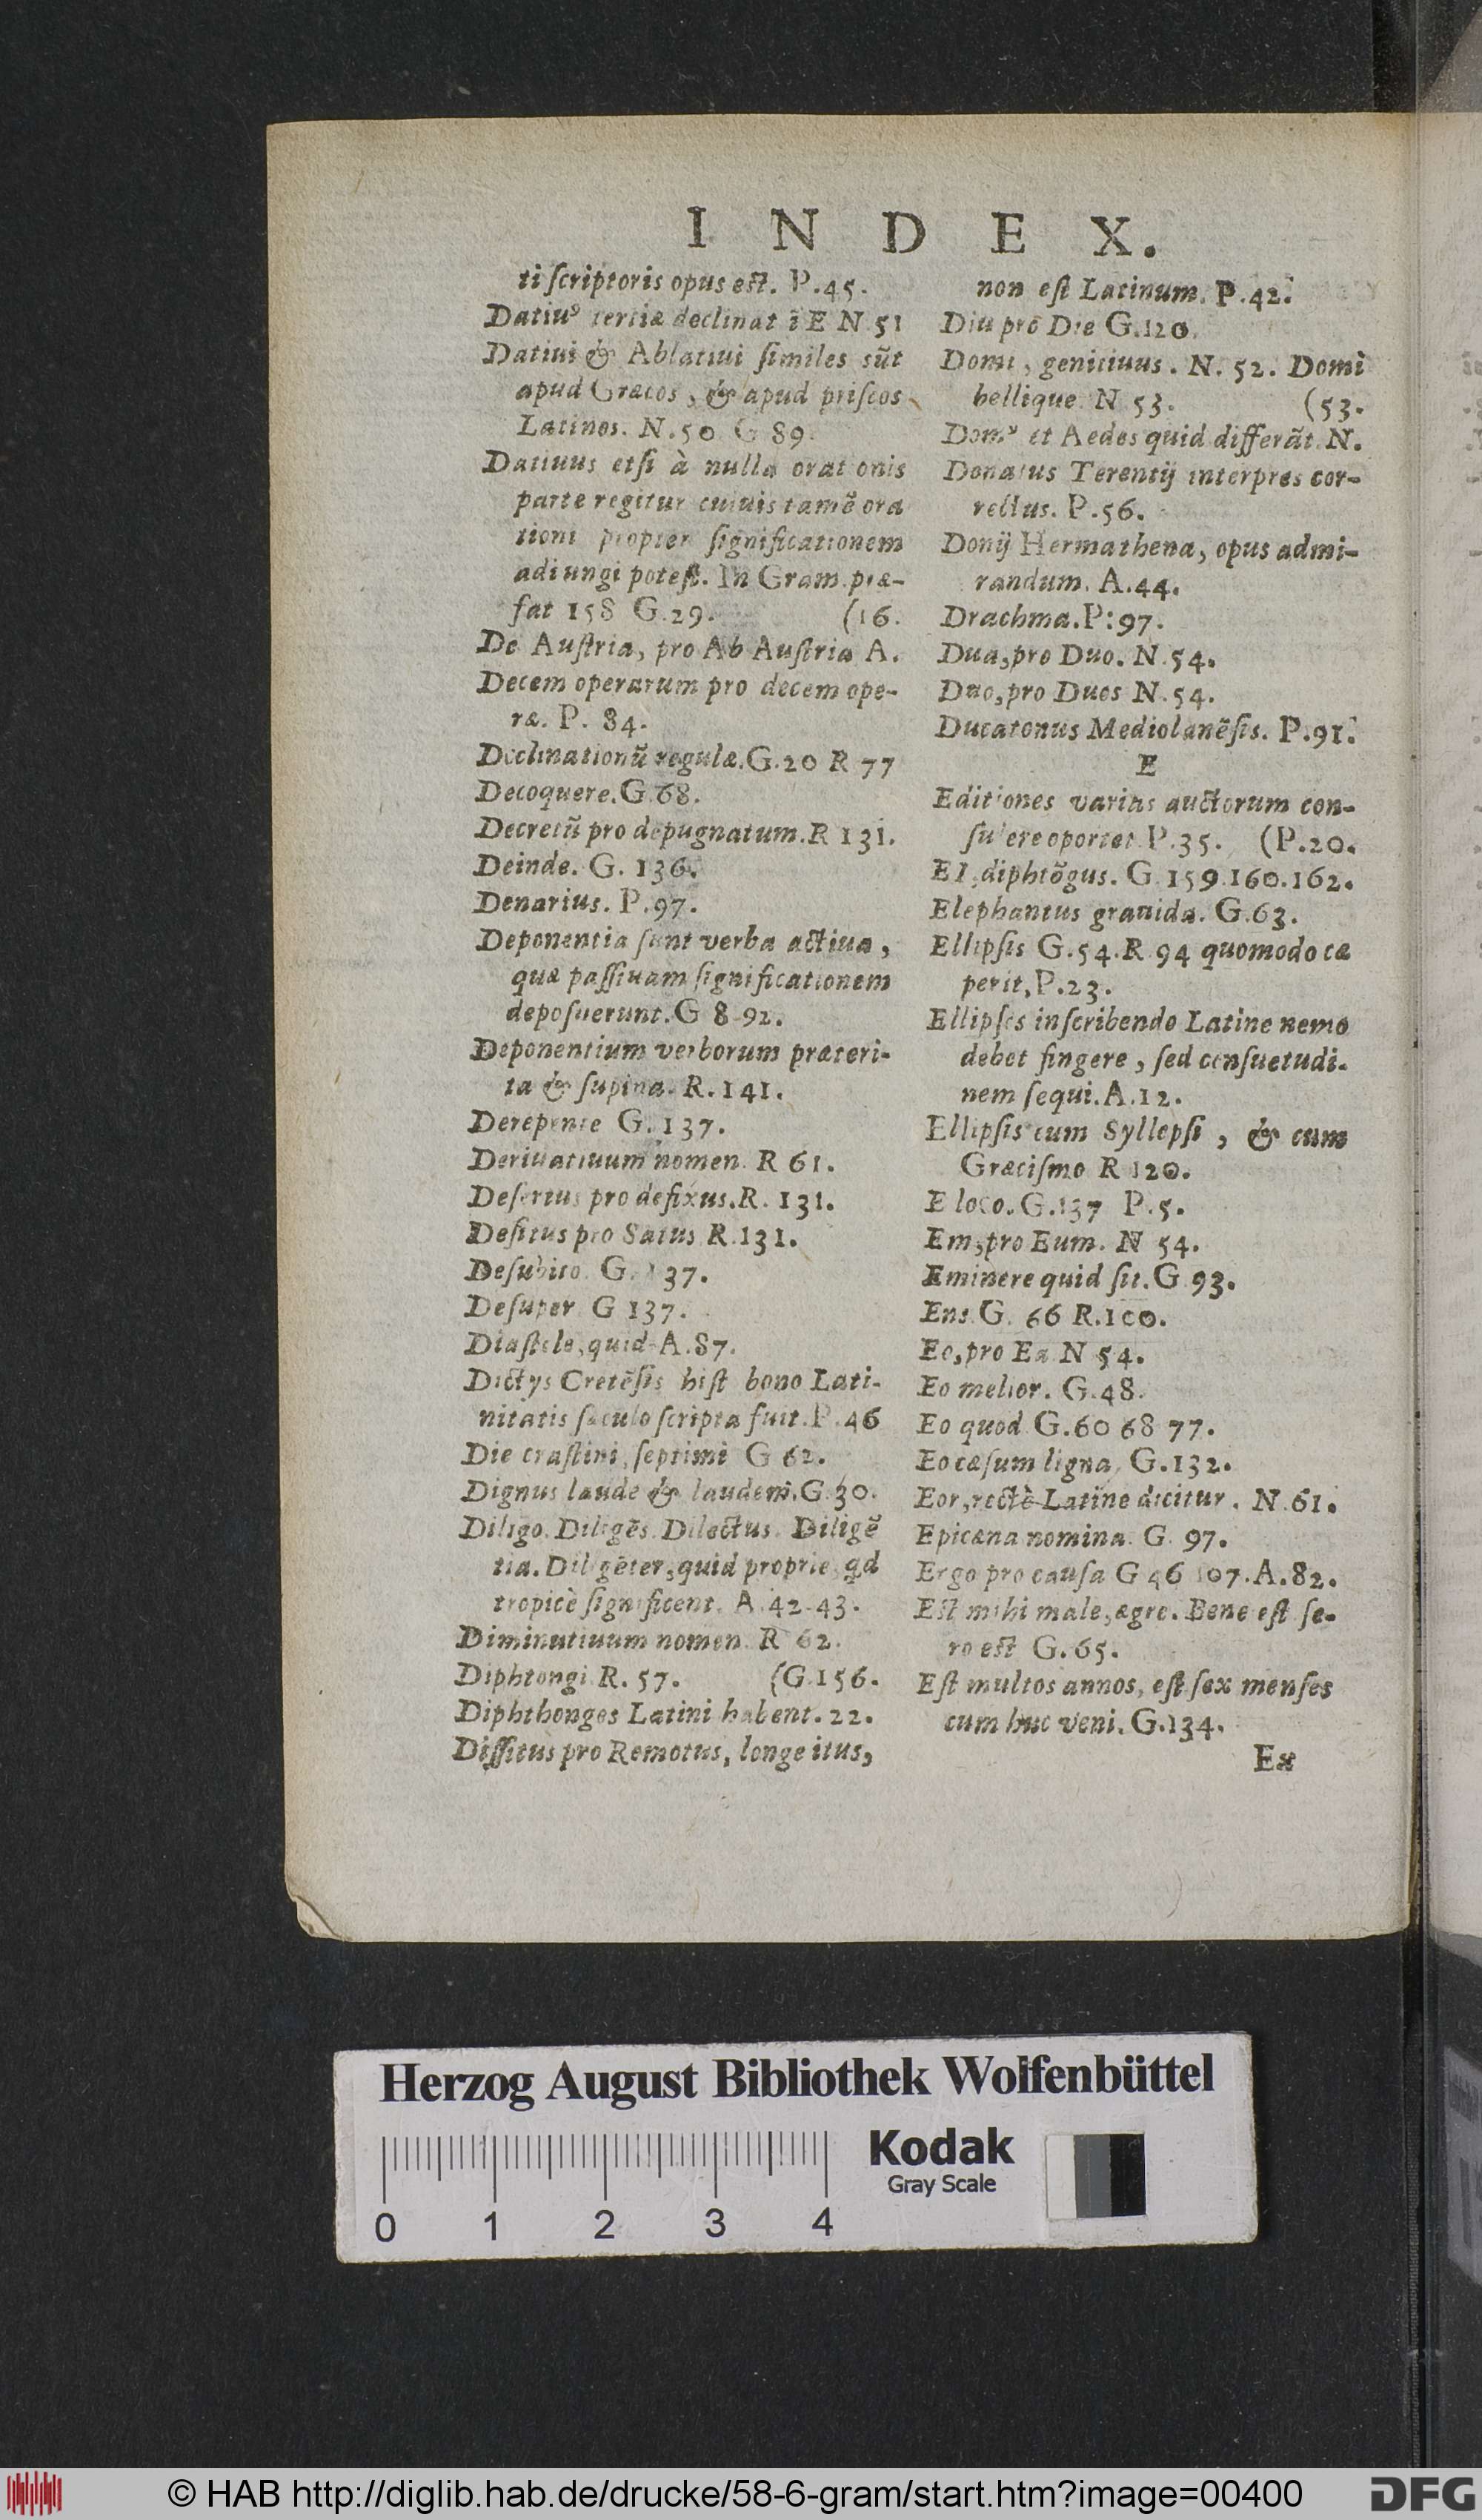 INDEX.
ti ſcriptoris opus eſt. P.45.
Datiuꝰ tertiæ declinat ĩ E N 51
Datiui & Ablatiui ſimiles sũt
apud Græcos, & apud priſcos
Latinos. N.50 G 89.
Datiuus etſi à nulla orationis
parte regitur cuiuis tamẽ ora
tioni propter ſignificationem
adiungi poteſt. In Gram. præ-
fat 158 G.29. (16.
De Auſtria, pro Ab Auſtria A.
Decem operarum pro decem ope-
ræ. P. 84.
Declinationũ regulæ.G.20 R 77
Decoquere.G.68.
Decretũ pro depugnatum.R 131.
Deinde. G. 136.
Denarius. P.97.
Deponentia ſunt verba actiua,
quæ paſſiuam ſignificationem
depoſuerunt.G 8-92.
Deponentium verborum præteri-
ta & ſupina. R.141.
Derepente G.137.
Deriuatiuum nomen. R 61.
Deſertus pro defixus.R. 131.
Deſitus pro Satus R.131.
Deſubito. G. 137.
Deſuper G 137.
Diaſtole, quid A.87.
Dictys Cretẽſis hiſt bono Lati-
nitatis ſæculo ſcripta fuit.P.46
Die craſtini, ſeptimi G 62.
Dignus laude & laudem.G.30.
Diligo. Diligẽs. Dilectus. Diligẽ
tia. Diligẽter, quid proprie, qd
tropicè ſignificent. A.42-43.
Diminutiuum nomen. R 62.
Diphtongi R. 57. (G.156.
Diphthongos Latini habent. 22.
Diſſitus pro Remotus, longe itus,
non eſt Latinum. P.42.
Diu pro Die G.120.
Domi, genitiuus. N. 52. Domi
bellique N 53. (53.
Domꝰ et Aedes quid differãt N.
Donatus Terentij interpres cor-
rectus. P.56.
Donij Hermathena, opus admi-
randum. A.44.
Drachma.P:97.
Dua, pro Duo. N.54.
Duo, pro Duos N.54.
Ducatonus Mediolanẽſis. P.91.
E
Editiones varias auctorum con-
ſulere oportet P.35. (P.20.
EI, diphtõgus. G.159.160.162.
Elephantus grauida. G.63.
Ellipſis G.54.R 94 quomodo cæ
perit, P.23.
Ellipſes in ſcribendo Latine nemo
debet fingere, ſed conſuetudi-
nem ſequi. A.12.
Ellipſis cum Syllepſi, & cum
Græciſmo R 120.
E loco. G.137 P.5.
Em, pro Eum. N 54.
Eminere quid ſit. G 93.
Ens G. 66 R.100.
Eo, pro Ea N 54.
Eo melior. G.48.
Eo quod G.60 68 77.
Eo cæſum ligna, G.132.
Eor, rectè Latine dicitur. N.61.
Epicæna nomina. G. 97.
Ergo pro cauſa G 46 107. A.82.
Eſt mihi male, ægre. Bene eſt ſe-
ro eſt G.65.
Eſt multos annos, eſt ſex menſes
cum huc veni. G.134.
Ex
Herzog August Bibliothek Wolfenbüttel
Kodak
Gray Scale
0 1 2 3 4
© HAB http://diglib.hab.de/drucke/58-6-gram/start.htm?image=00400
DFG